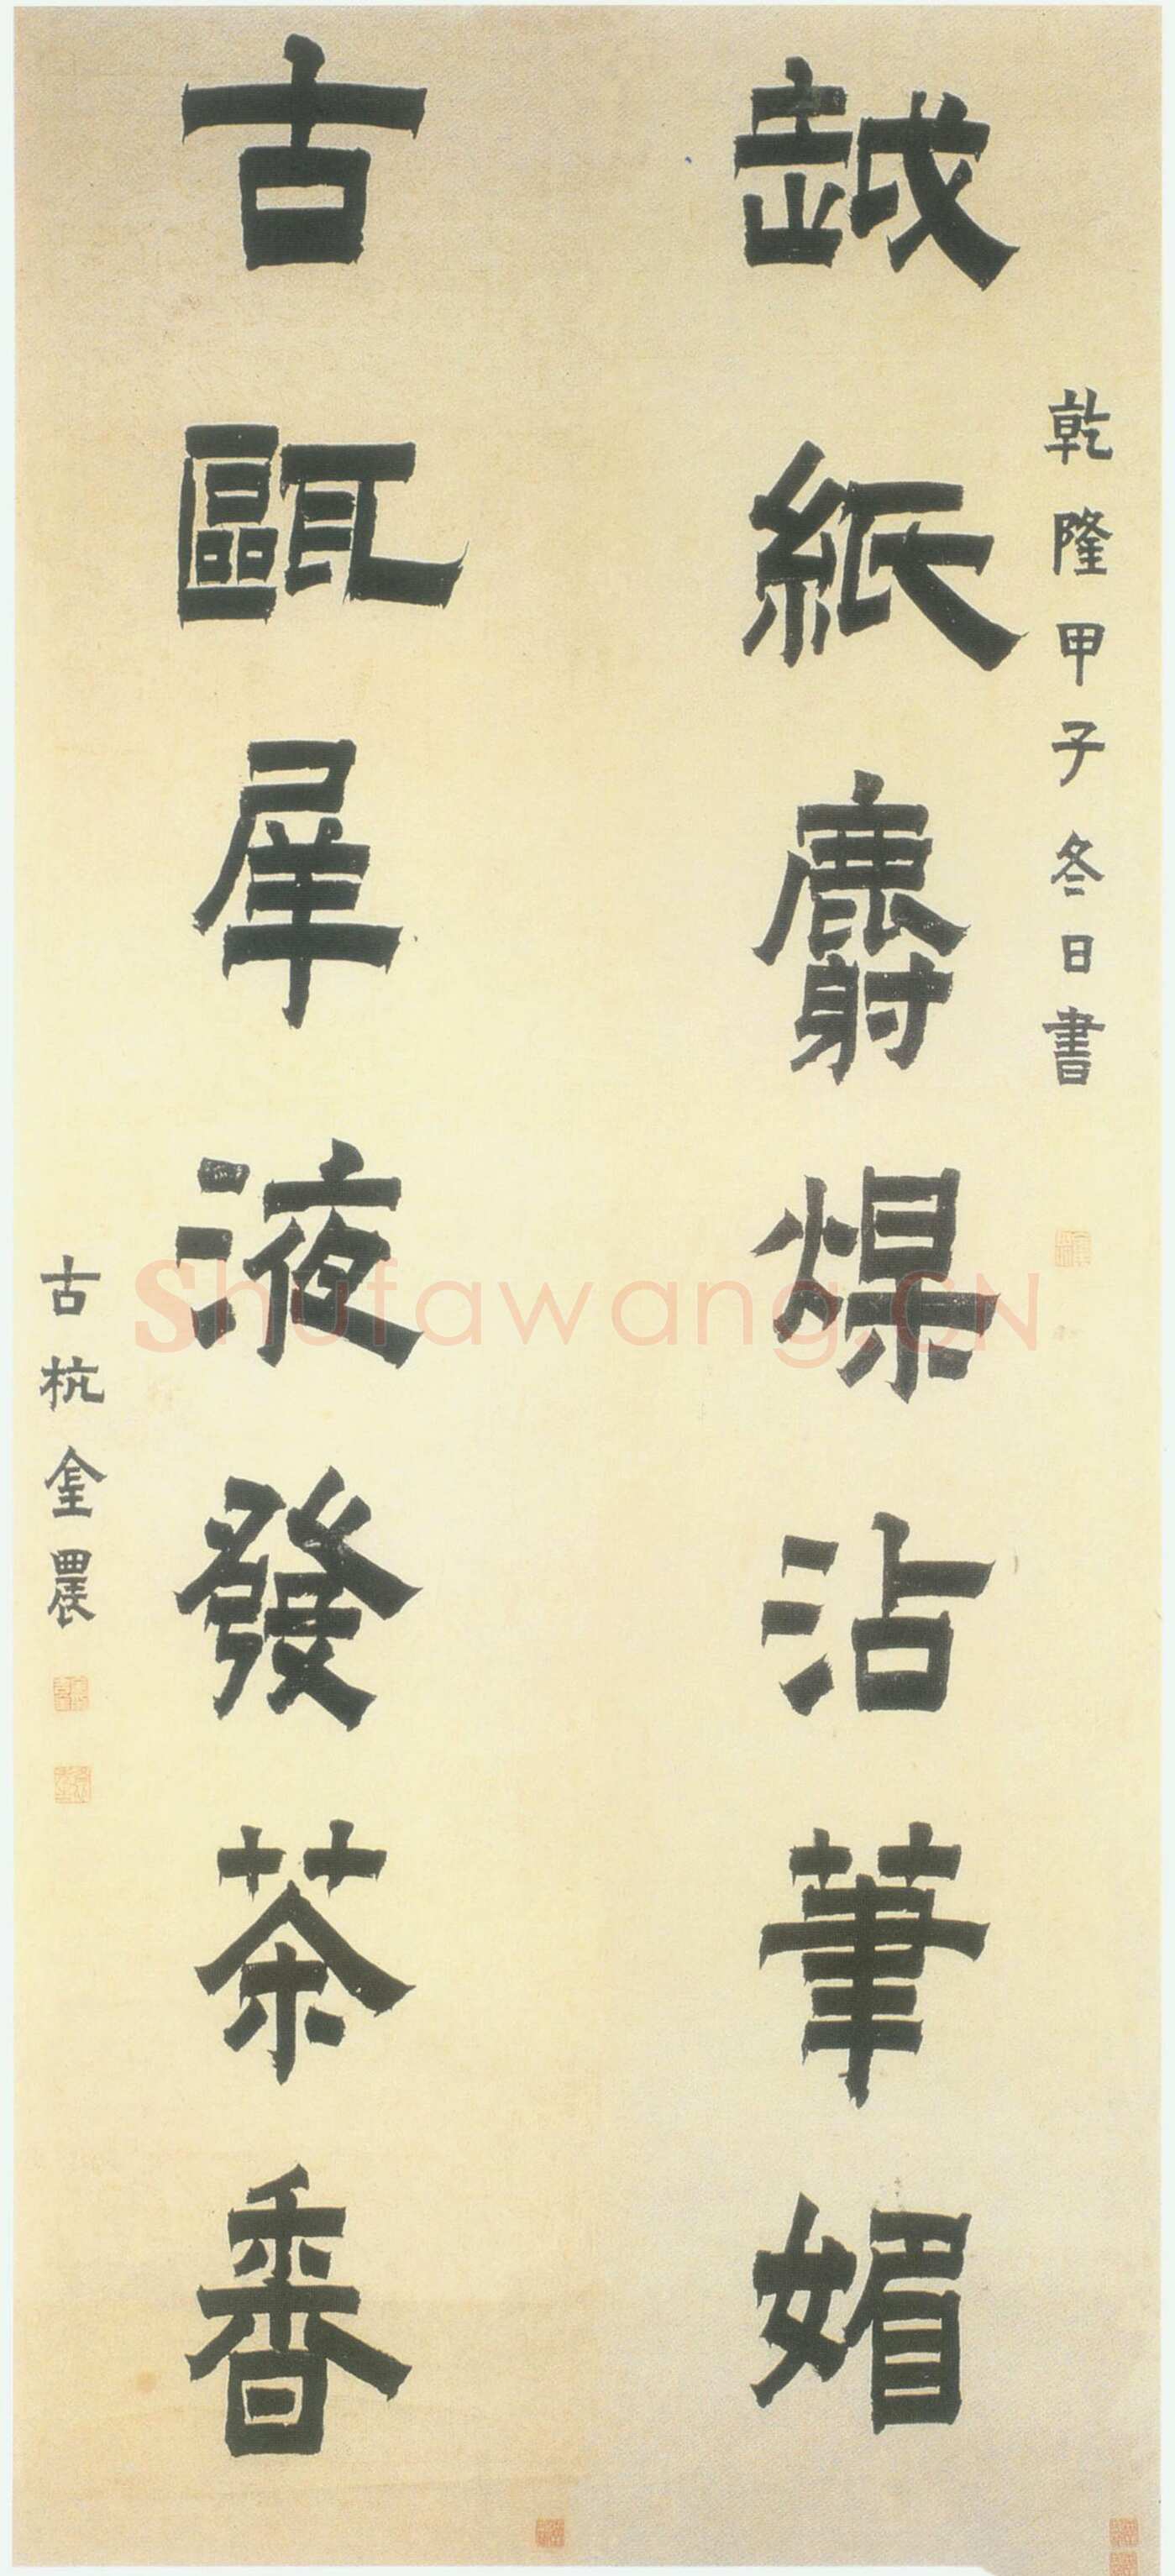 乾隆甲子冬日書
越紙麝煤沾筆媚
古甌犀液發茶香
古杭金農
Shufawang.CN